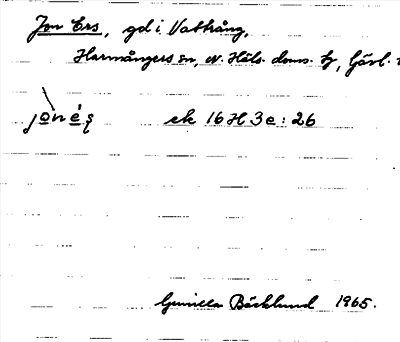 Jon Ers, gd i Vattrång,
Harmångers sn, N. Häls. doms. hg, Gävl.
jonès ek 16 H 3e : 26
Gunilla Bäcklund 1965.